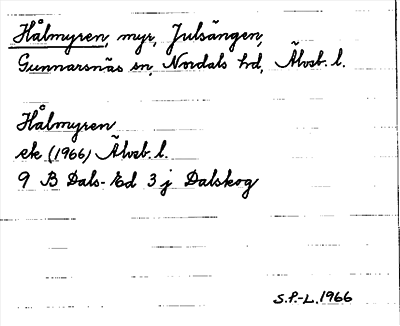 Hålmyren, myr, Julsängen,
Gunnarsnäs sn, Nordals hd, Älvsb. l.
Hålmyren
ek (1966) Älvsb. l.
9 B Dals-Ed 3 j Dalskog
S.F.-L. 1966